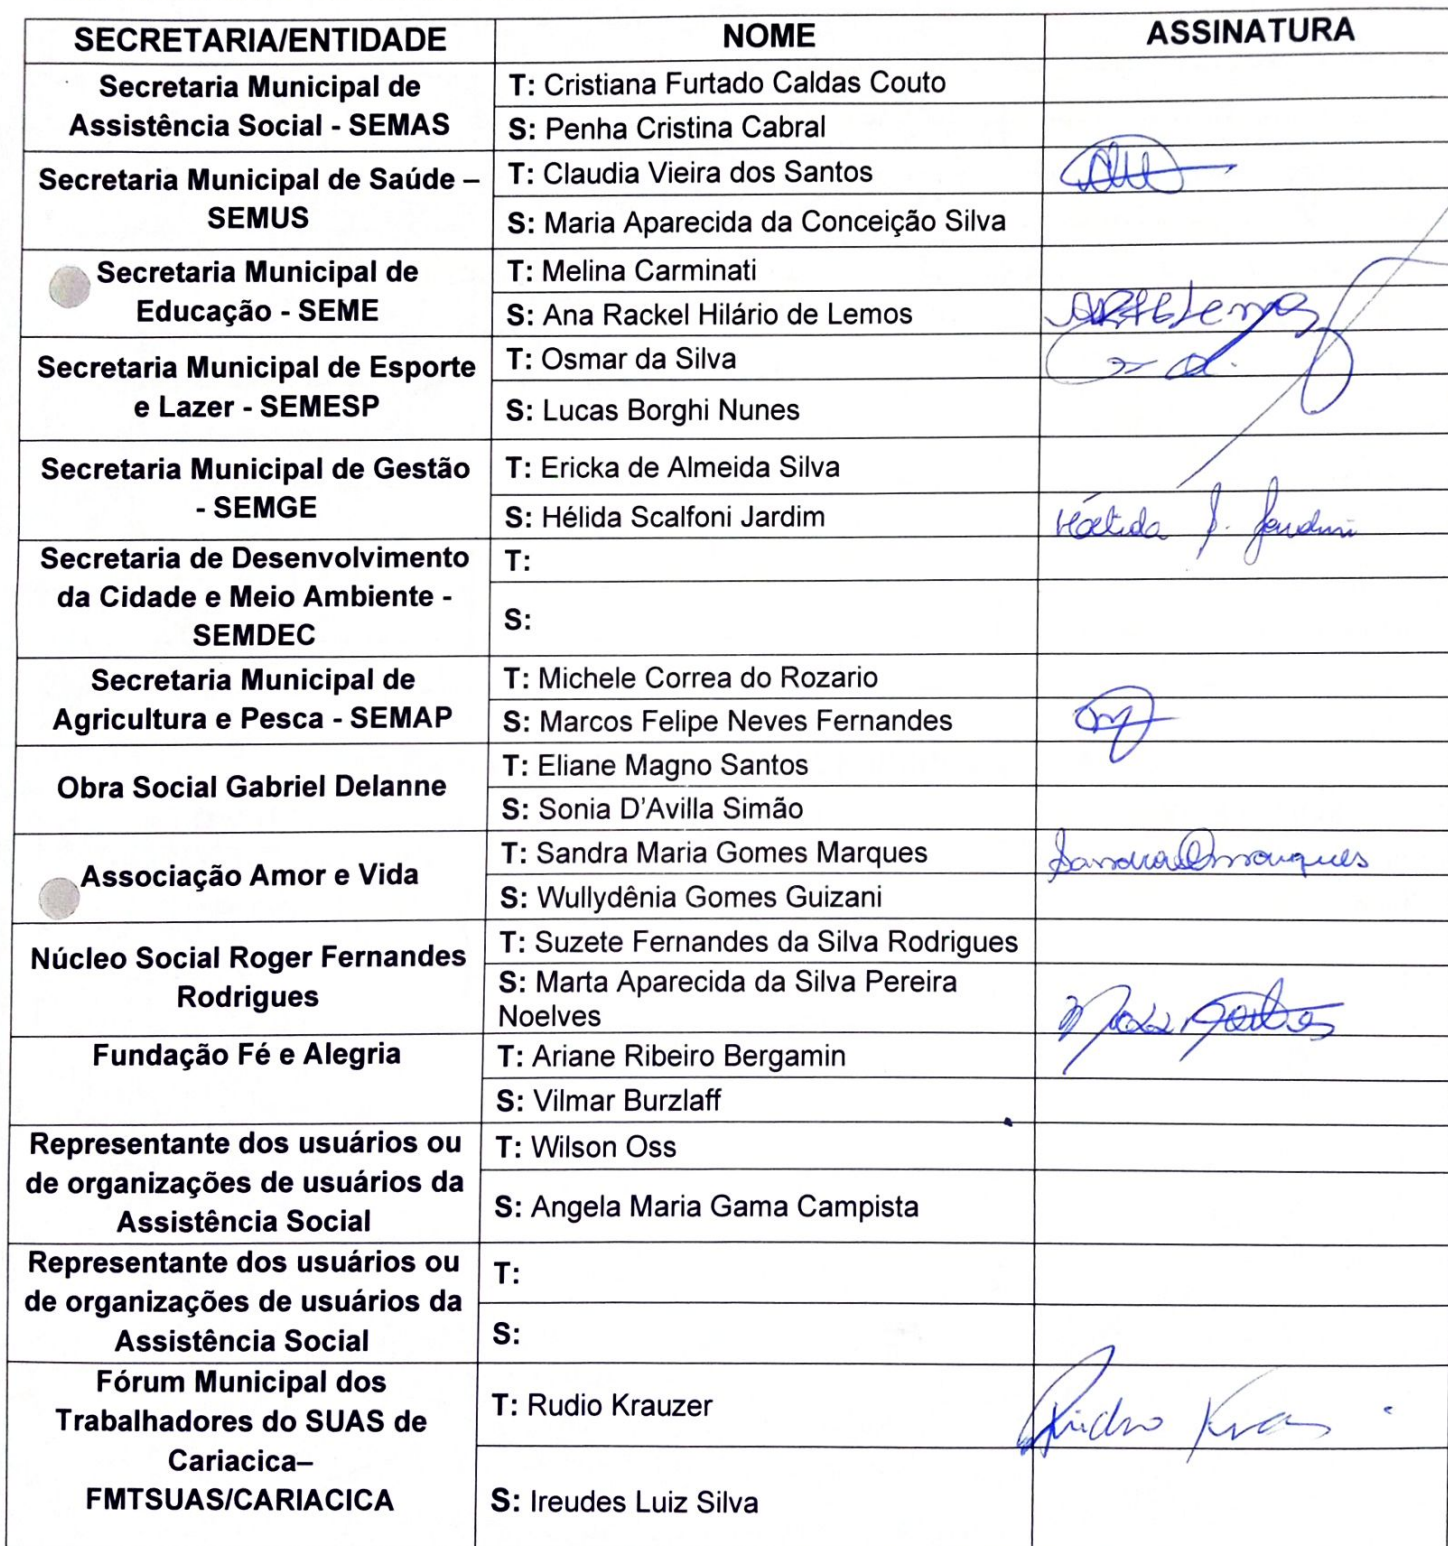 SECRETARIA/ENTIDADE NOME ASSINATURA
Secretaria Municipal de
Assistência Social - SEMAS
T: Cristiana Furtado Caldas Couto
S: Penha Cristina Cabral
Secretaria Municipal de Saúde –
SEMUS
T: Claudia Vieira dos Santos
S: Maria Aparecida da Conceição Silva
Secretaria Municipal de
Educação - SEME
T: Melina Carminati
S: Ana Rackel Hilário de Lemos
Secretaria Municipal de Esporte
e Lazer - SEMESP
T: Osmar da Silva
S: Lucas Borghi Nunes
Secretaria Municipal de Gestão
- SEMGE
T: Ericka de Almeida Silva
S: Hélida Scalfoni Jardim
Hélida S. Jardim
Secretaria de Desenvolvimento
da Cidade e Meio Ambiente -
SEMDEC
T:
S:
Secretaria Municipal de
Agricultura e Pesca - SEMAP
T: Michele Correa do Rozario
S: Marcos Felipe Neves Fernandes
Obra Social Gabriel Delanne
T: Eliane Magno Santos
S: Sonia D'Avilla Simão
Associação Amor e Vida
T: Sandra Maria Gomes Marques
S: Wullydênia Gomes Guizani
Núcleo Social Roger Fernandes
Rodrigues
T: Suzete Fernandes da Silva Rodrigues
S: Marta Aparecida da Silva Pereira
Noelves
Fundação Fé e Alegria
T: Ariane Ribeiro Bergamin
S: Vilmar Burzlaff
Representante dos usuários ou
de organizações de usuários da
Assistência Social
T: Wilson Oss
S: Angela Maria Gama Campista
Representante dos usuários ou
de organizações de usuários da
Assistência Social
T:
S:
Fórum Municipal dos
Trabalhadores do SUAS de
Cariacica–
FMTSUAS/CARIACICA
T: Rudio Krauzer
S: Ireudes Luiz Silva